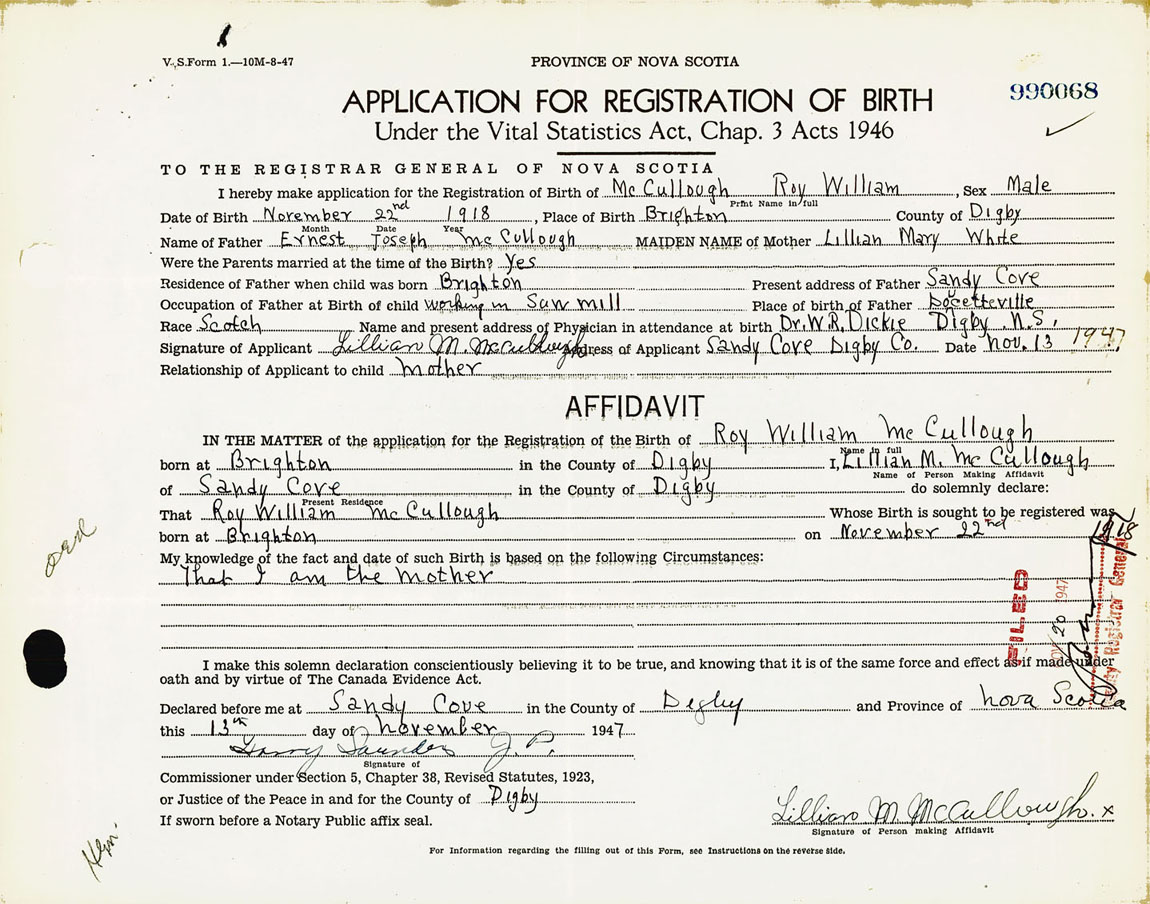 V.S.Form 1.—10M-8-47
PROVINCE OF NOVA SCOTIA
990068
APPLICATION FOR REGISTRATION OF BIRTH
Under the Vital Statistics Act, Chap. 3 Acts 1946
TO THE REGISTRAR GENERAL OF NOVA SCOTIA
I hereby make application for the Registration of Birth of Mc Cullough Roy William, Sex Male
Print Name in full
Date of Birth November 22nd 1918, Place of Birth Brighton County of Digby
Month Date Year
Name of Father Ernest Joseph Mc Cullough MAIDEN NAME of Mother Lillian Mary White
Were the Parents married at the time of the Birth? Yes
Residence of Father when child was born Brighton Present address of Father Sandy Cove
Occupation of Father at Birth of child working in Saw mill Place of birth of Father Docetteville
Race Scotch Name and present address of Physician in attendance at birth Dr. W.R. Dickie Digby N.S.
Signature of Applicant Lillian M. McCullough Address of Applicant Sandy Cove Digby Co. Date Nov. 13 1947
Relationship of Applicant to child Mother
AFFIDAVIT
IN THE MATTER of the application for the Registration of the Birth of Roy William Mc Cullough
Name in full
born at Brighton in the County of Digby I, Lillian M. Mc Cullough
Name of Person Making Affidavit
of Sandy Cove in the County of Digby do solemnly declare:
Present Residence
That Roy William Mc Cullough Whose Birth is sought to be registered was
born at Brighton on November 22nd 1918
My knowledge of the fact and date of such Birth is based on the following Circumstances:
That I am the Mother
FILED
NOV 20 1947
Deputy Registrar General
I make this solemn declaration conscientiously believing it to be true, and knowing that it is of the same force and effect as if made under
oath and by virtue of The Canada Evidence Act.
Declared before me at Sandy Cove in the County of Digby and Province of Nova Scotia
this 13th day of November 1947
Harry Saunders J. P.
Signature of
Commissioner under Section 5, Chapter 38, Revised Statutes, 1923,
or Justice of the Peace in and for the County of Digby
If sworn before a Notary Public affix seal.
Lillian M. McCullough. x
Signature of Person making Affidavit
For Information regarding the filling out of this Form, see Instructions on the reverse side.